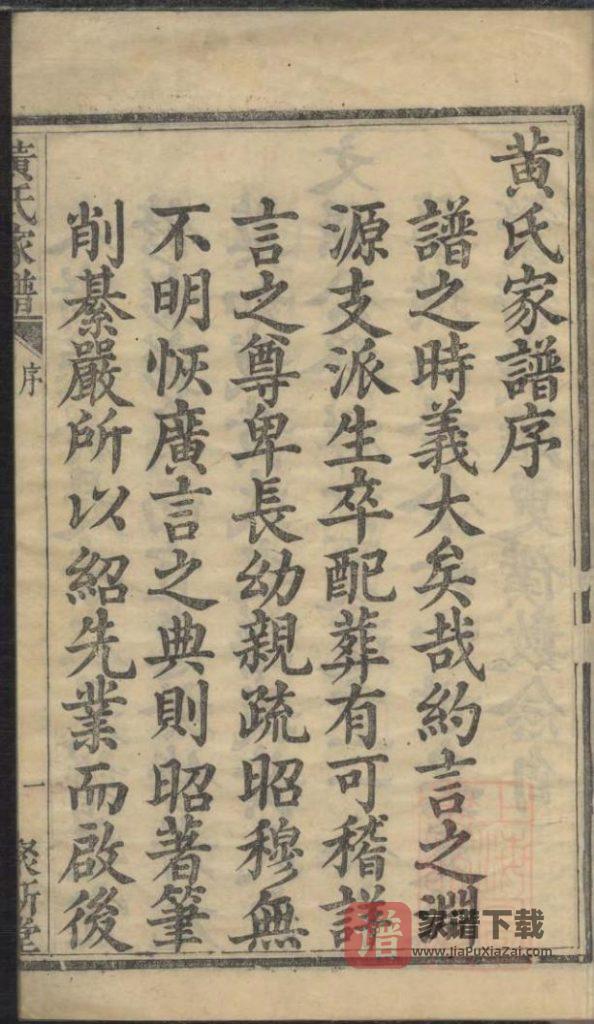 黄氏家譜序
譜之時義大矣哉約言之淵
源支派生卒配葬有可稽詳
言之尊卑長幼親疏昭穆無
不明恢廣言之典則昭著筆
削綦嚴所以紹先業而啟後
黃氏家譜
序
一
堂
家谱下载
www.JiaPuXiaZai.com
谱